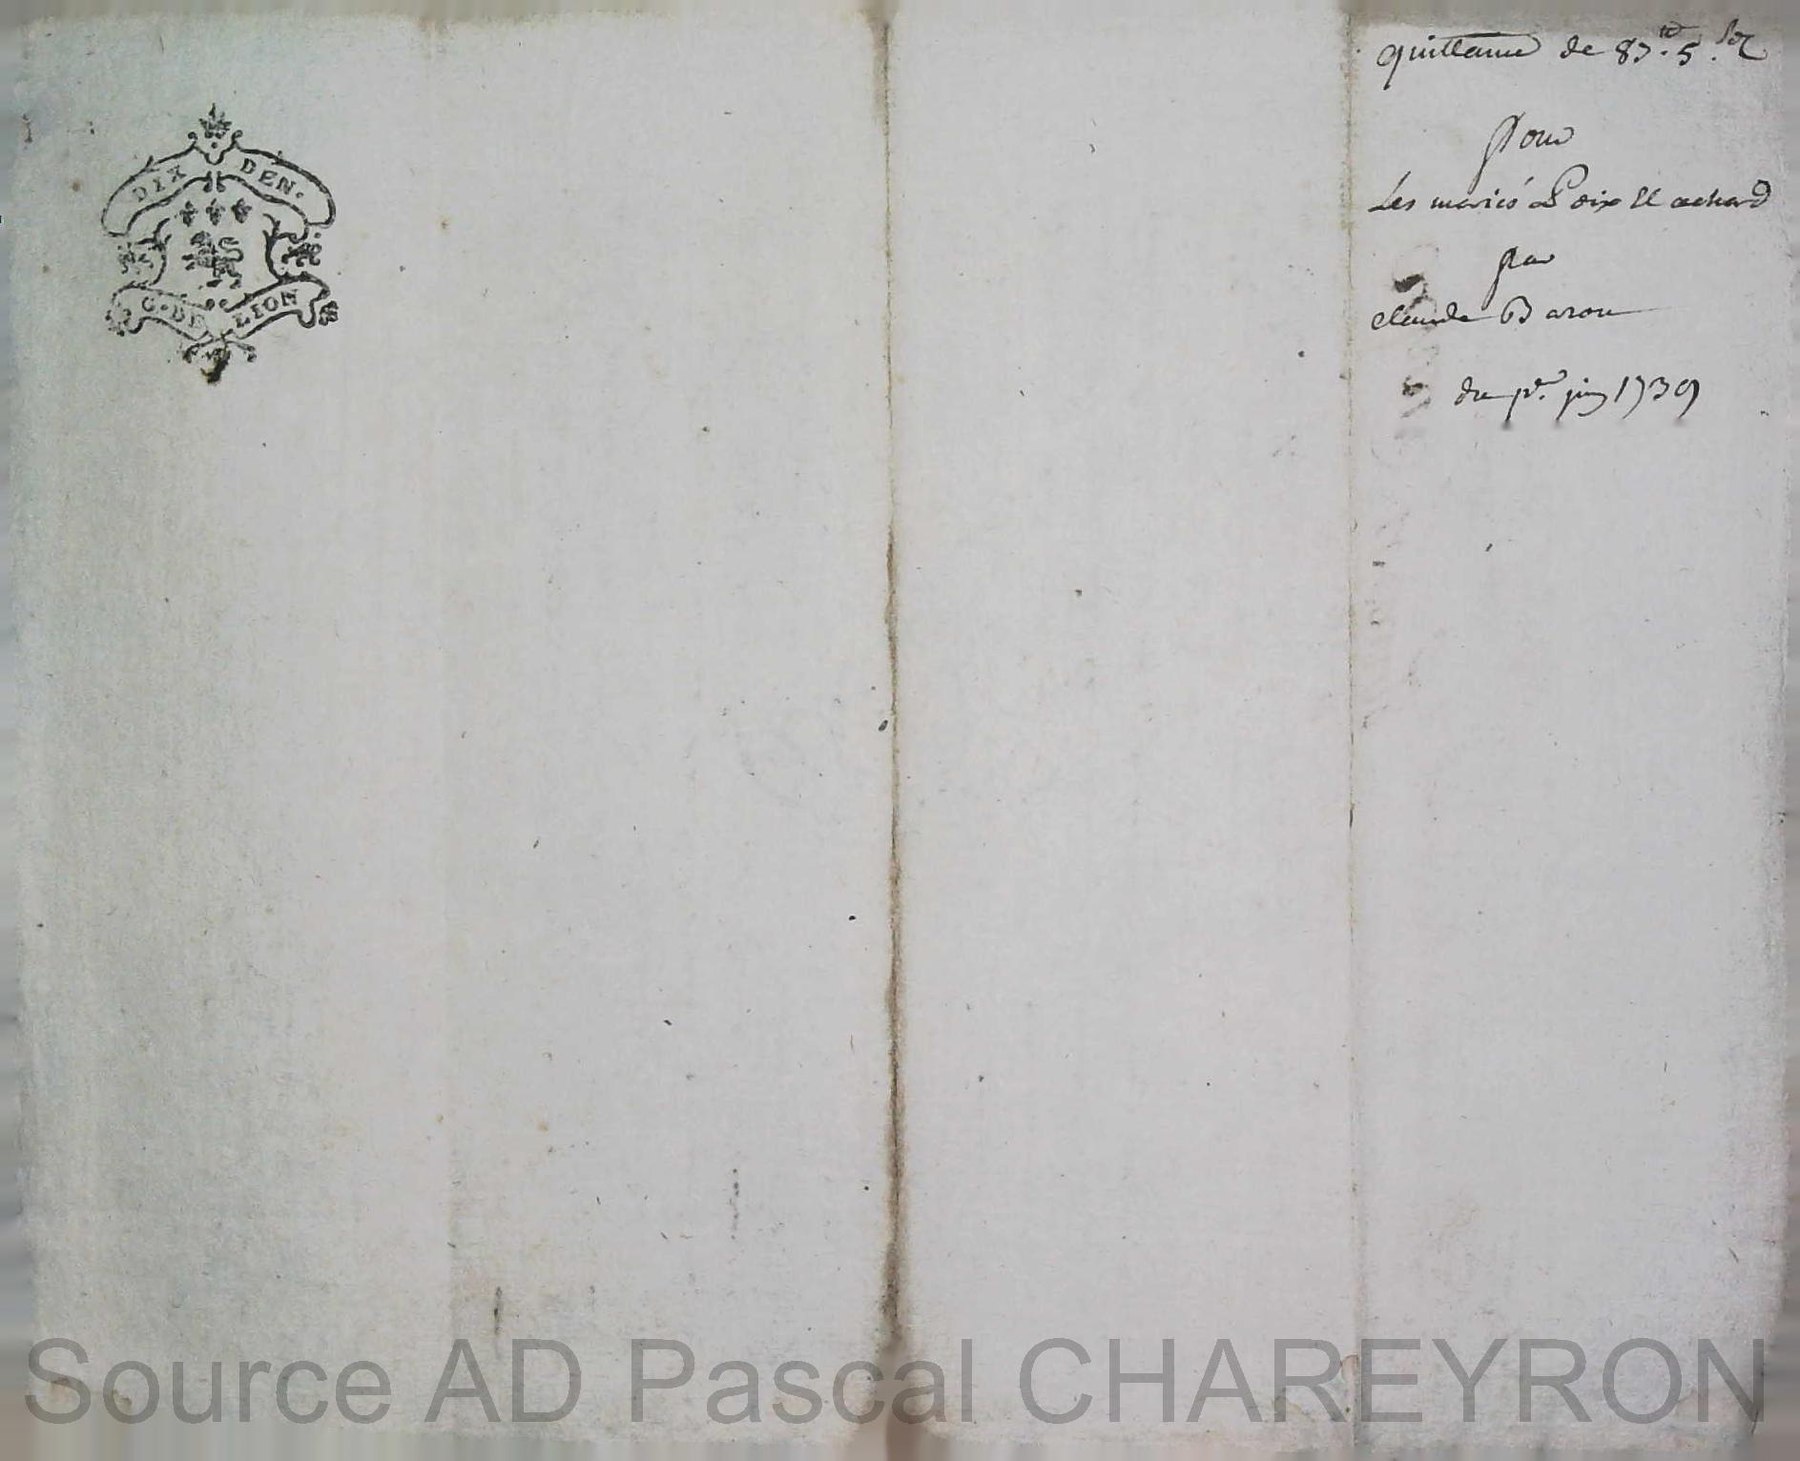 DIX DEN.
G. DE LION
quittance de 87.tt 5. sols
pour
Les mariés Poix et achard
par
claude Baron
du pr. juin 1739
Source AD Pascal CHAREYRON